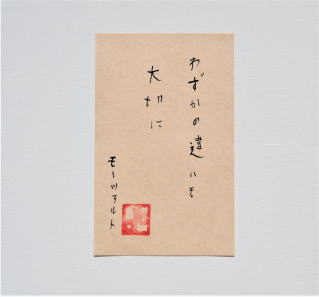 わずかの違いも
大切に
モーツァルト